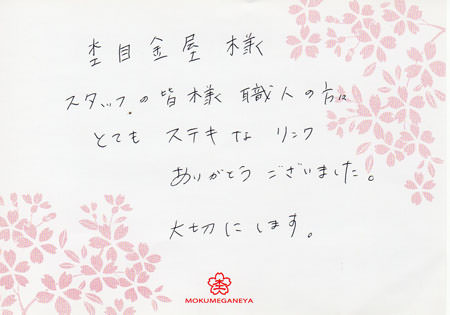 杢目金屋 様
スタッフの皆様 職人の方に
とても ステキな リング
ありがとう ございました。
大切に します。
MOKUMEGANEYA